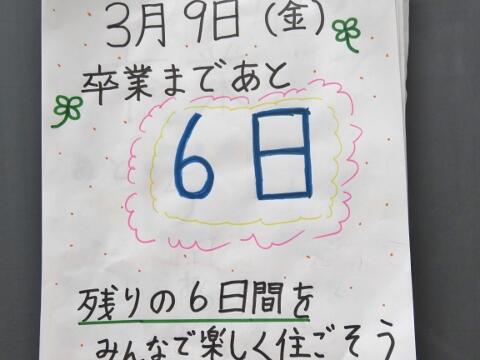 3月9日(金)
卒業まであと
6日
残りの6日間を
みんなで楽しく住ごそう